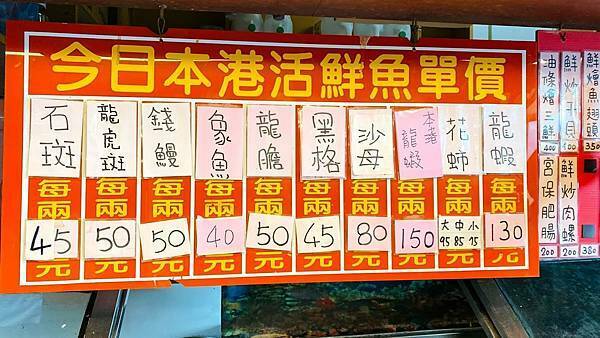 今日本港活鮮魚單價
石斑 每兩 45 元
龍虎斑 每兩 50 元
錢鰻 每兩 50 元
象魚 每兩 40 元
龍膽 每兩 50 元
黑格 每兩 45 元
沙母 每兩 80 元
本港龍蝦 每兩 150 元
花蟳 每兩 大95 中85 小75 元
龍蝦 每兩 130 元
油條燴三鮮 400
鮮炒 100
鮮燴魚翅頭 350
宮保肥腸 200
鮮炒肉 200
螺 380